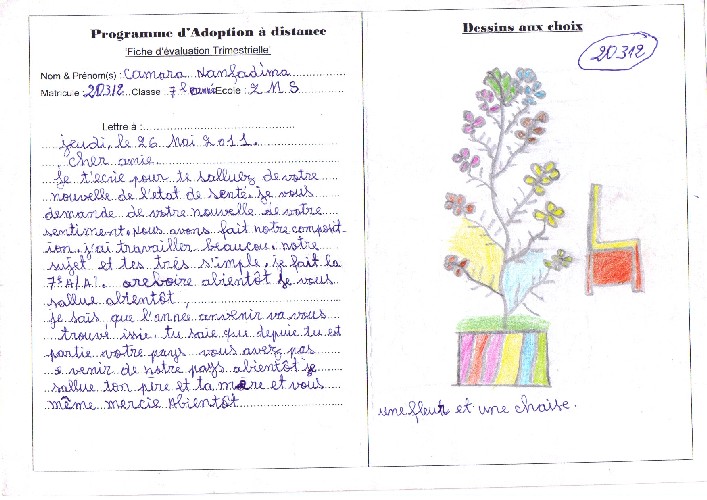 Programme d'Adoption à distance
Fiche d'évaluation Trimestrielle
Nom & Prénom(s) : Camara Nanfadima
Matricule : 20312 Classe 7e année Ecole : Z M S
Lettre à :
jeudi, le 26 Mai 2011.
Cher amie
Je t'ecrie pour ti salluez de votre
nouvelle de l'etat de senté. je vous
demande de votre nouvelle de votre
sentiment. nous avons fait notre composit-
ion. j'ai travailler beaucou. notre
sujet et tes trés s'imple. je fait la
7e A/A. areboire abientôt je vous
sallue abientôt,
je sais que l'anne anvenir va vous
trouvé issie. tu saie que depuie tu est
partie votre pays vous avez pas
venir de notre pays abientôt je
sallue ton père et ta mere et vous
même mercie abientôt
Dessins aux choix
20312
une fleur et une chaise.